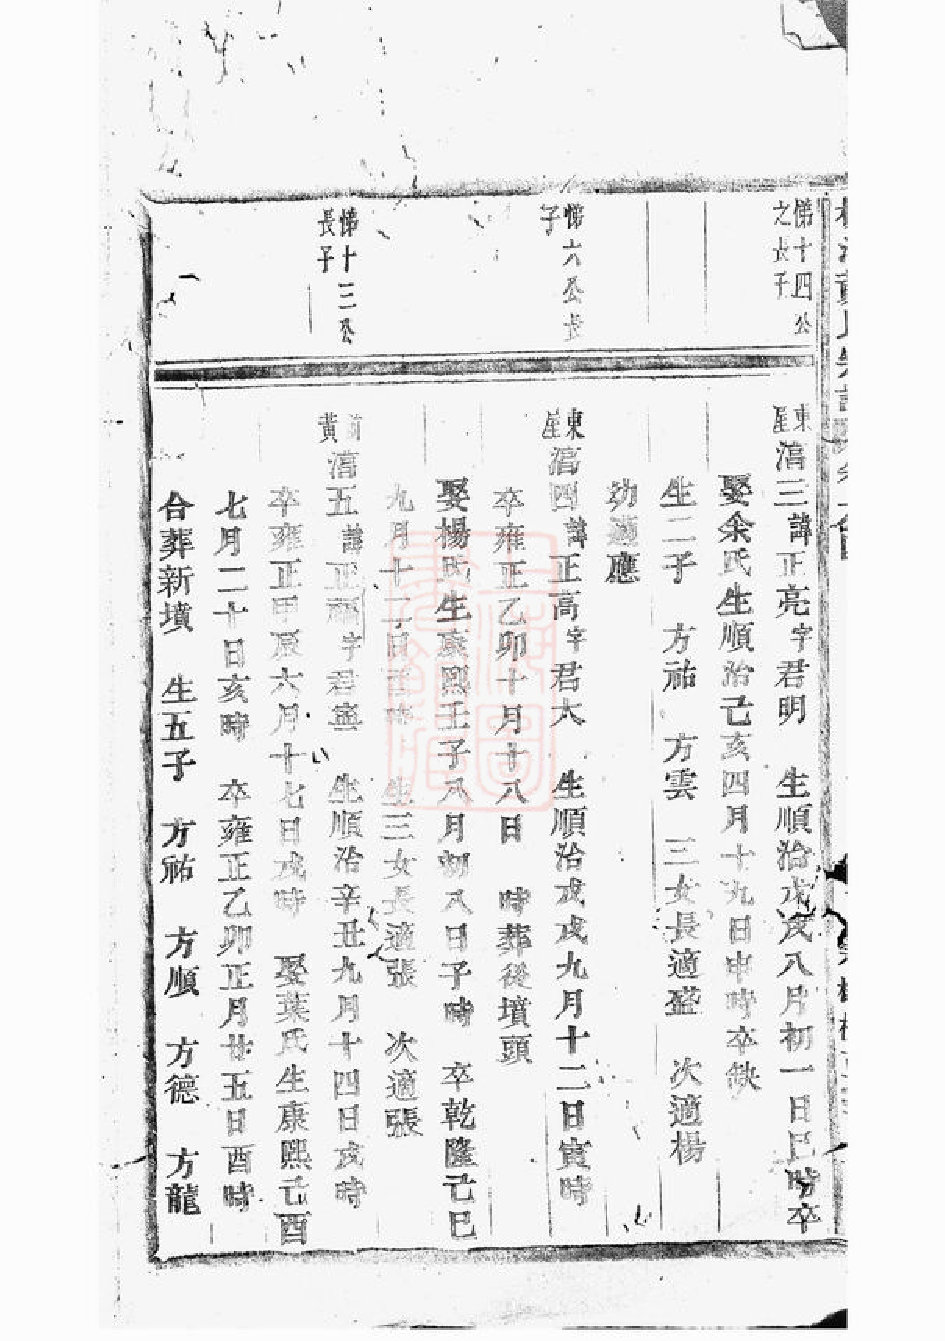 悌十四公
之長子
東
星
涓三諱正亮字君明　生順治戊戌八月初一日巳時卒
娶余氏生順治己亥四月十九日申時卒缺
生二子　方祐　方雲　三女長適盛　次適楊
幼適應
悌六公長
子
東
星
涓四諱正高字君大　生順治戊戌九月十二日寅時
卒雍正乙卯十月十八日　時葬後墳頭
娶楊氏生康熙壬子八月初八日子時　卒乾隆己巳
九月十二日　時　生三女長適張　次適張
悌十三公
長子
前
黃
涓五諱正　字君寧　生順治辛丑九月十四日亥時
卒雍正甲辰六月十七日戌時　娶葉氏生康熙己酉
七月二十日亥時　卒雍正乙卯正月廿五日酉時
合葬新墳　生五子　方祐　方順　方德　方龍